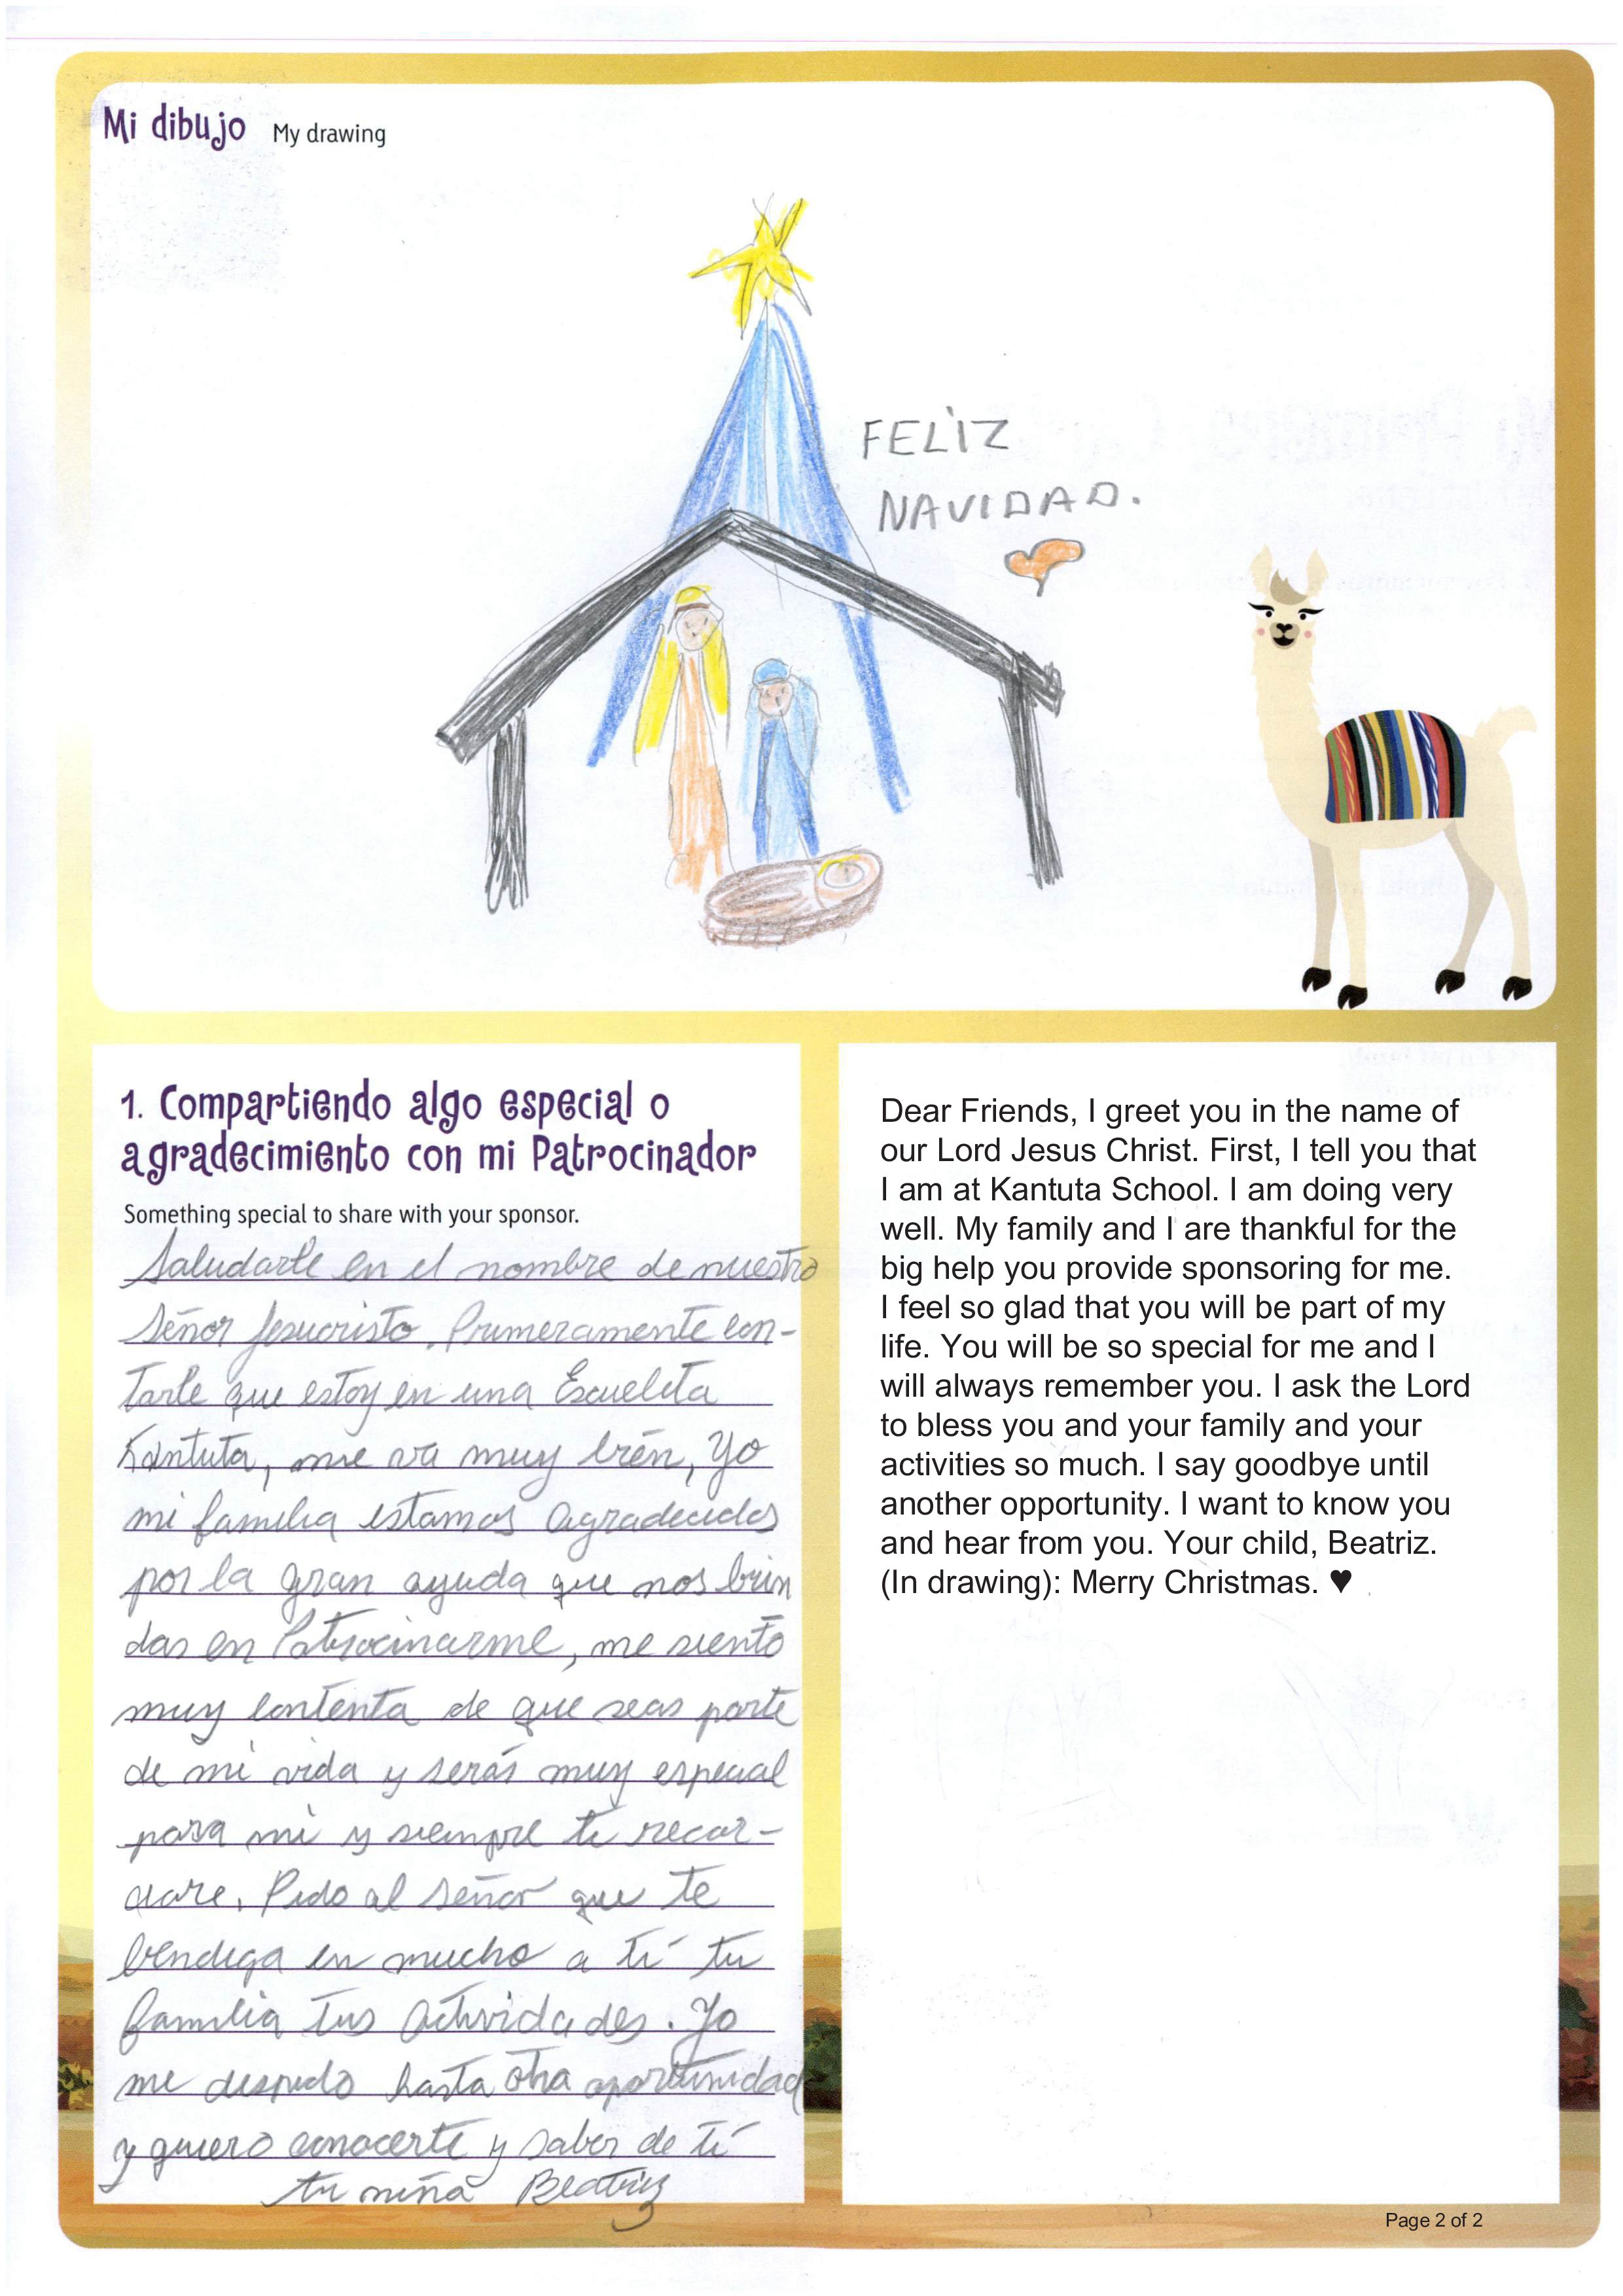 Mi dibujo My drawing
FELIZ
NAVIDAD.
1. Compartiendo algo especial o
agradecimiento con mi Patrocinador
Something special to share with your sponsor.
Saludarte en el nombre de nuestro
Señor Jesucristo. Primeramente con-
tarte que estoy en una Escuelita
Kantuta, me va muy bién, Yo
mi familia estamos agradecidos
por la gran ayuda que nos brin
das en Patrocinarme, me siento
muy contenta de que seas parte
de mi vida y serás muy especial
para mi y siempre te recor-
dare. Pido al señor que te
bendiga en mucho a tí tu
familia tus actividades. Yo
me despido hasta otra oportunidad
y quiero conocerte y saber de tí
tu niña Beatriz
Dear Friends, I greet you in the name of
our Lord Jesus Christ. First, I tell you that
I am at Kantuta School. I am doing very
well. My family and I are thankful for the
big help you provide sponsoring for me.
I feel so glad that you will be part of my
life. You will be so special for me and I
will always remember you. I ask the Lord
to bless you and your family and your
activities so much. I say goodbye until
another opportunity. I want to know you
and hear from you. Your child, Beatriz.
(In drawing): Merry Christmas. ♥
Page 2 of 2